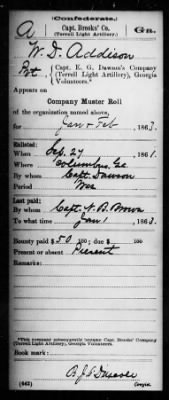 (Confederate.)
A Capt. Brooks' Co. Ga.
(Terrell Light Artillery).
W. D. Addison
Pvt, Capt. E. G. Dawson's Company
(Terrell Light Artillery), Georgia
Volunteers.*
Appears on
Company Muster Roll
of the organization named above,
for Jan & Feb, 1863.
Enlisted:
When Sep. 27, 1861.
Where Columbus, Ga
By whom Capt. Dawson
Period War
Last paid:
By whom Capt. N. B. Brown
To what time Jan 1, 1863.
Bounty paid $50 100; due $ 100
Present or absent Present
Remarks:
*This company subsequently became Capt. Brooks' Company
(Terrell Light Artillery), Georgia Volunteers.
Book mark:
(642) Copyist.